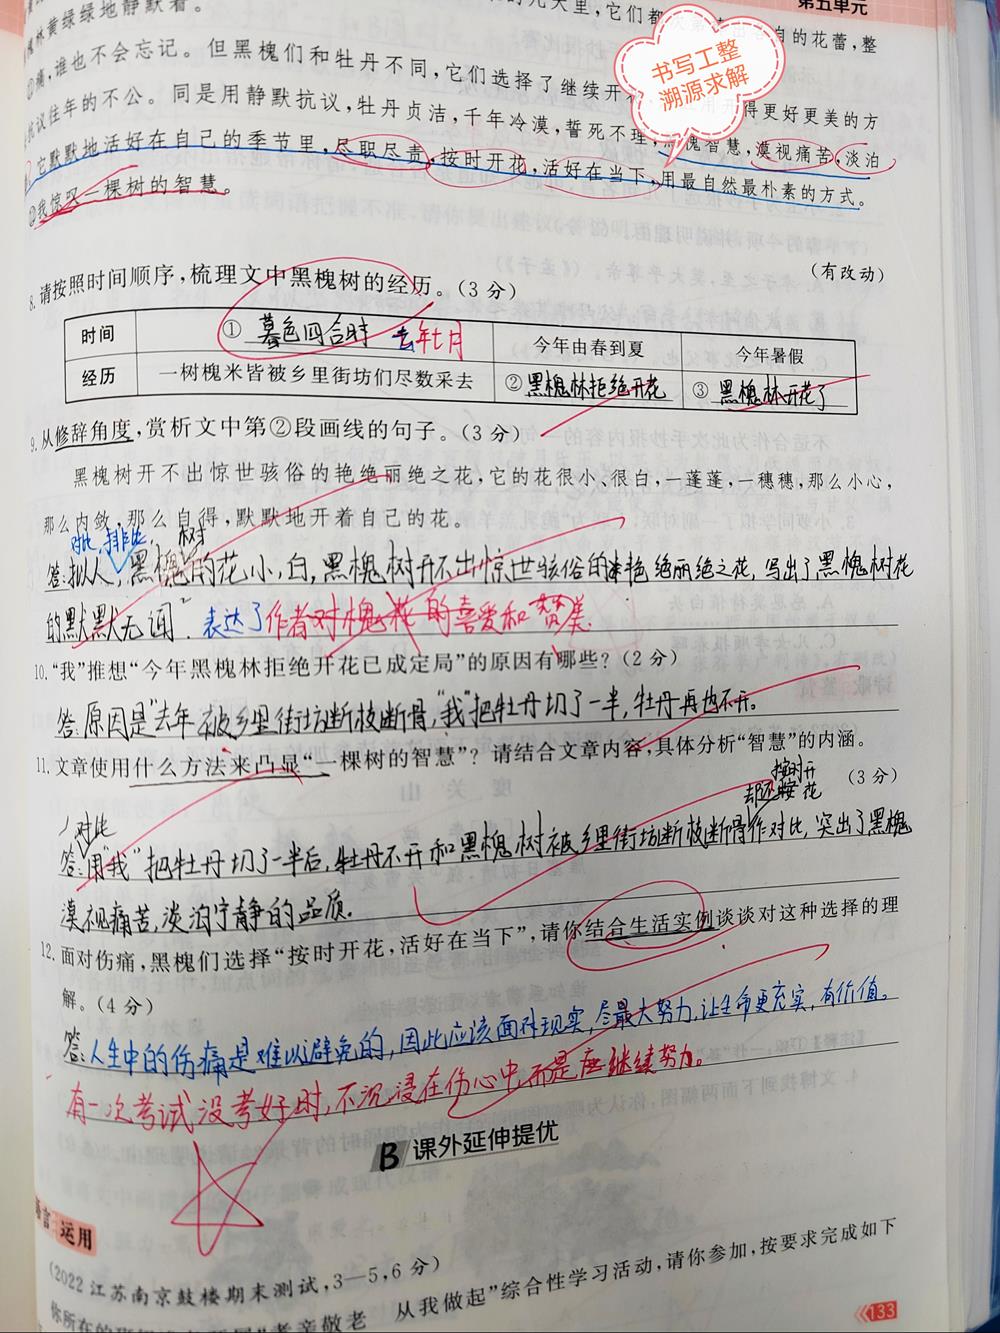 第五单元
槐林黄绿绿地静默着。
的花蕾，整
痛，谁也不会忘记。但黑槐们和牡丹不同，它们选择了继续开
得更好更美的方
抗议往年的不公。同是用静默抗议，牡丹贞洁，千年冷漠，誓死不理，黑槐智慧，漠视痛苦，淡泊
它默默地活好在自己的季节里，尽职尽责，按时开花，活好在当下，用最自然最朴素的方式。
我惊叹一棵树的智慧。
书写工整
溯源求解
（有改动）
8.请按照时间顺序，梳理文中黑槐树的经历。（3分）
时间 ①暮色四合时 去年七月 今年由春到夏 今年暑假
经历 一树槐米皆被乡里街坊们尽数采去 ②黑槐林拒绝开花 ③黑槐林开花了
9.从修辞角度，赏析文中第②段画线的句子。（3分）
黑槐树开不出惊世骇俗的艳绝丽绝之花，它的花很小、很白，一蓬蓬，一穗穗，那么小心，
那么内敛，那么自得，默默地开着自己的花。
对比，排比， 树
答：拟人，黑槐的花小，白，黑槐树开不出惊世骇俗的艳绝丽绝之花，写出了黑槐树花
的默默无闻。表达了作者对槐花的喜爱和赞美.
10.“我”推想“今年黑槐林拒绝开花已成定局”的原因有哪些？（2分）
答：原因是“去年被乡里街坊断枝断骨，“我”把牡丹切了一半，牡丹再也不开.
11.文章使用什么方法来凸显“一棵树的智慧”？请结合文章内容，具体分析“智慧”的内涵。
（3分）
按时开
却还 花
对比
答：用“我”把牡丹切了一半后，牡丹不开和黑槐树被乡里街坊断枝断骨作对比，突出了黑槐
漠视痛苦，淡泊宁静的品质.
12.面对伤痛，黑槐们选择“按时开花，活好在当下”，请你结合生活实例谈谈对这种选择的理
解。（4分）
答：人生中的伤痛是难以避免的，因此应该面对现实，尽最大努力，让生命更充实，有价值。
有一次考试没考好时，不沉浸在伤心中，而是应继续努力。
B 课外延伸提优
语言运用
（2022江苏南京鼓楼期末测试，3—5，6分）
从我做起”综合性学习活动，请你参加，按要求完成如下
133